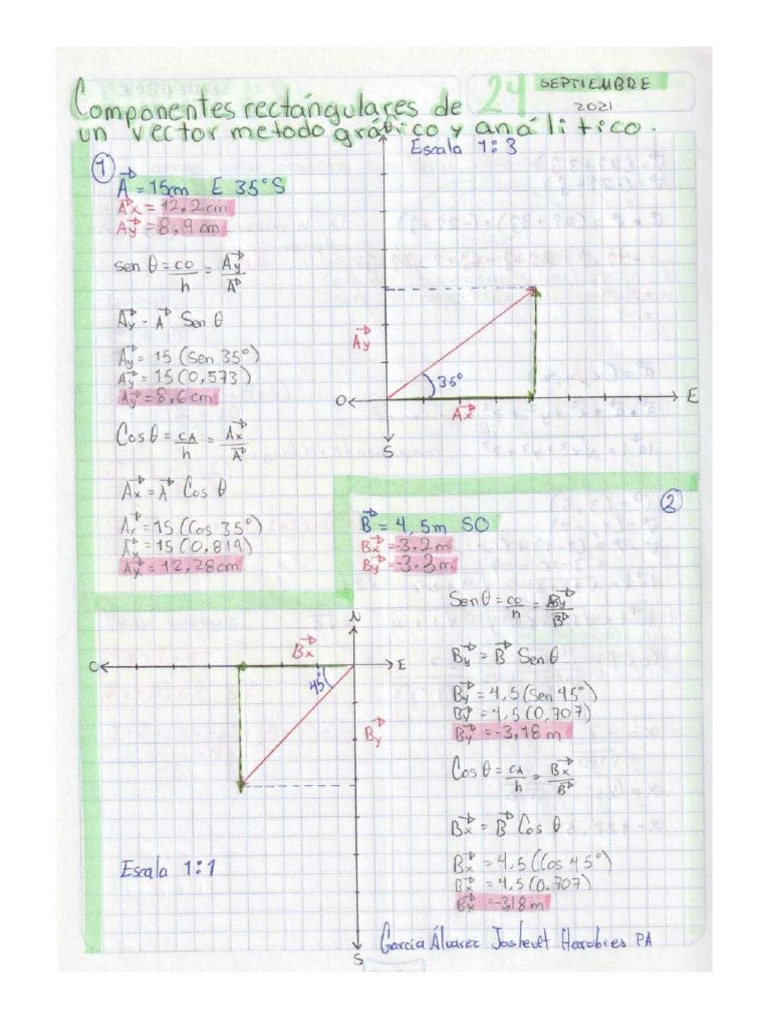 24 SEPTIEMBRE
2021
Componentes rectángulares de
un vector metodo gráfico y análitico.
Escala 1:3
1
A = 15cm E 35° S
Ax = 12.2 cm
Ay = 8,9 cm
sen θ = co/h = Ay/A
Ay - A Sen θ
Ay = 15 (Sen 35°)
Ay = 15 (0,573)
Ay = 8,6 cm
Cos θ = CA/h = Ax/A
Ax = A Cos θ
Ax = 15 (Cos 35°)
Ay = 15 (0,819)
Ax = 12,28 cm
Ay
35°
O
Ax
E
S
2
B = 4,5m SO
Bx = -3.2 m
By = -3.3 m
Sen θ = co/h = By/B
By = B Sen θ
By = 4,5 (Sen 45°)
By = 4,5 (0,707)
By = -3,18 m
Cos θ = CA/h = Bx/B
Bx = B Cos θ
Bx = 4,5 (Cos 45°)
Bx = 4,5 (0,707)
Bx = -3,18 m
N
Bx
O
E
45°
By
S
Escala 1:1
García Álvarez Joshevet Harobies PA